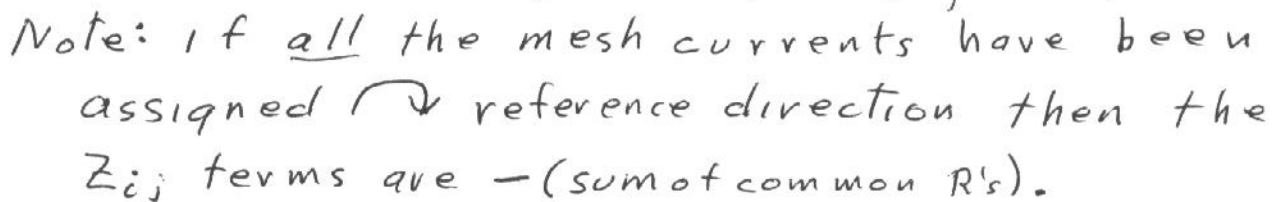 Note: if all the mesh currents have been
assigned ↷ reference direction then the
Zij terms are -(sum of common R's).